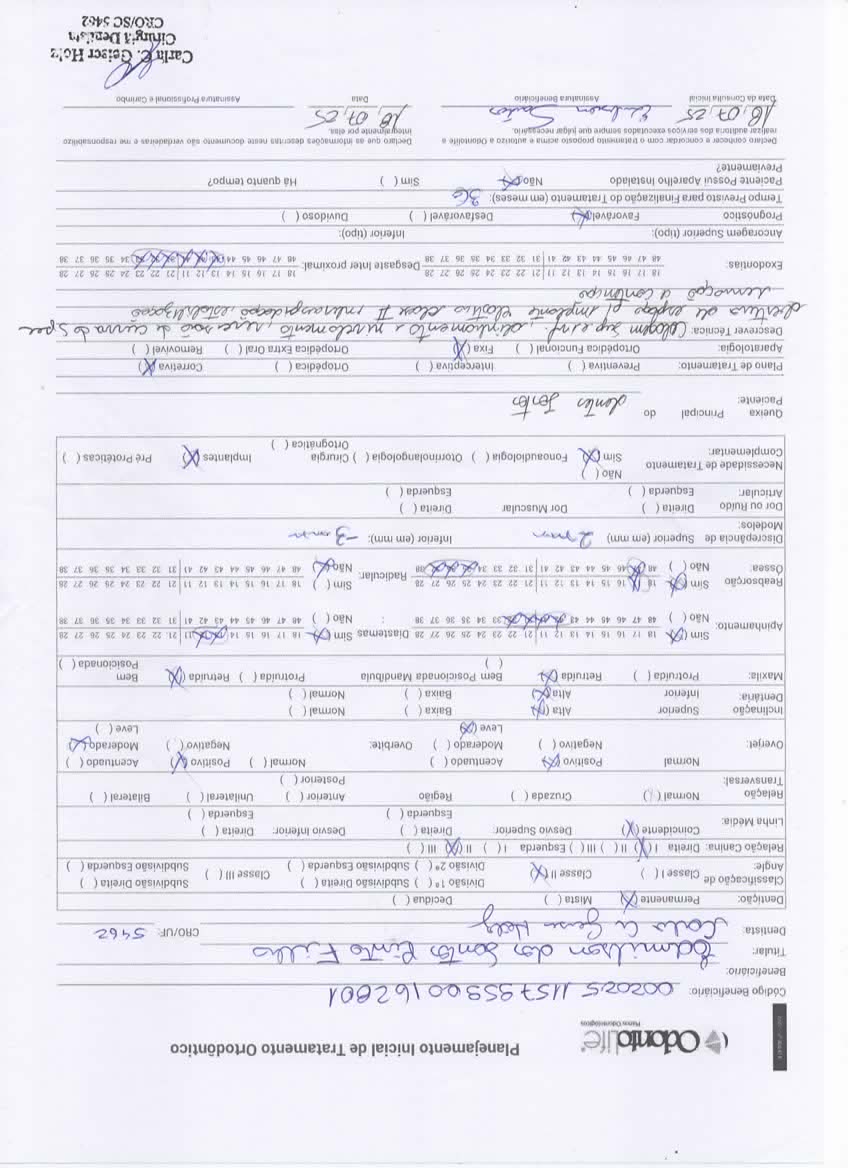 OdontoLife
Planos Odontológicos
Planejamento Inicial de Tratamento Ortodôntico
Código Beneficiário: 002025 1157959 00162001
Beneficiário:
Titular: Edmilson dos Santos Pinto Filho
Dentista: Carla C Geiser Holz CRO/UF: 5462
Dentição: Permanente (X) Mista ( ) Decídua ( )
Classificação de Angle: Classe I ( ) Classe II (X) Divisão 1ª ( ) Subdivisão Direita ( ) Classe III ( ) Subdivisão Direita ( )
Divisão 2ª ( ) Subdivisão Esquerda ( ) Subdivisão Esquerda ( )
Relação Canina: Direita I (X) II ( ) III ( ) Esquerda I ( ) II (X) III ( )
Linha Média: Coincidente (X) Desvio Superior: Direita ( ) Desvio Inferior: Direita ( )
Esquerda ( ) Esquerda ( )
Relação Transversal: Normal ( ) Cruzada ( ) Região Anterior ( ) Unilateral ( ) Bilateral ( )
Posterior ( )
Overjet: Normal Positivo (X) Acentuado ( ) Overbite: Normal ( ) Positivo (X) Acentuado ( )
Negativo ( ) Moderado ( ) Negativo ( ) Moderado (X)
Leve (X) Leve ( )
Inclinação Dentária: Superior Alta (X) Baixa ( ) Normal ( )
Inferior Alta (X) Baixa ( ) Normal ( )
Maxila: Protruída ( ) Retruída (X) Bem Posicionada ( ) Mandíbula Protruída ( ) Retruída (X) Bem Posicionada ( )
Apinhamento: Sim (X) 18 17 16 15 14 13 12 11 | 21 22 23 24 25 26 27 28 Diastemas : Sim (X) 18 17 16 15 14 11 | 21 22 23 24 25 26 27 28
Não ( ) 48 47 46 45 44 43 33 34 35 36 37 38 Não ( ) 48 47 46 45 44 43 42 41 | 31 32 33 34 35 36 37 38
Reabsorção Óssea: Sim (X) 18 16 15 14 13 12 11 | 21 22 23 24 25 26 27 28 Radicular: Sim ( ) 18 17 16 15 14 13 12 11 | 21 22 23 24 25 26 27 28
Não ( ) 48 46 45 44 43 42 41 | 31 32 33 34 38 Não (X) 48 47 46 45 44 43 42 41 | 31 32 33 34 35 36 37 38
Discrepância de Modelos: Superior (em mm) 2 mm Inferior (em mm): -3 mm
Dor ou Ruído Articular: Direita ( ) Esquerda ( ) Dor Muscular Direita ( ) Esquerda ( )
Necessidade de Tratamento Complementar: Não ( )
Sim (X) Fonoaudiologia ( ) Otorrinolangologia ( ) Cirurgia Ortognática ( ) Implantes (X) Pré Protéticas ( )
Queixa Principal do Paciente: dentes tortos
Plano de Tratamento: Preventiva ( ) Interceptiva ( ) Ortopédica ( ) Corretiva (X)
Aparatologia: Ortopédica Funcional ( ) Fixa (X) Ortopédica Extra Oral ( ) Removível ( )
Descrever Técnica: Colagem sup e inf, alinhamento e nivelamento, reversão da curva de Spee
abertura de espaço p/ implante elástico class II intercuspidação, estabilização
remoção e contenção
Exodontias: 18 17 16 15 14 13 12 11 | 21 22 23 24 25 26 27 28 Desgaste Inter proximal: 18 17 16 15 14 13 12 11 | 21 22 23 24 25 26 27 28
48 47 46 45 44 43 42 41 | 31 32 33 34 35 36 37 38 48 47 46 45 44 34 35 36 37 38
Ancoragem Superior (tipo): Inferior (tipo):
Prognóstico Favorável (X) Desfavorável ( ) Duvidoso ( )
Tempo Previsto para Finalização do Tratamento (em meses): 36
Paciente Possui Aparelho Instalado Previamente? Não (X) Sim ( ) Há quanto tempo?
Declaro conhecer e concordar com o tratamento proposto acima e autorizo a Odontolife a realizar auditoria dos serviços executados sempre que julgar necessário.
Declaro que as informações descritas neste documento são verdadeiras e me responsabilizo integralmente por elas.
18, 07, 25 Edmilson Santos 18, 07, 25
Data da Consulta Inicial Assinatura Beneficiário Data Assinatura Profissional e Carimbo
Carla C. Geiser Holz
Cirurgiã Dentista
CRO/SC 5462